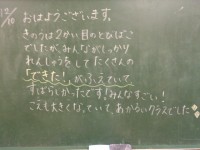 12/10
おはようございます。
きのうは2かい目のとびばこ
でしたが、みんながしっかり
れんしゅうをしてたくさんの
「できた!」がふえていて
すばらしかったです。みんなすごい!
こえも大きくなっていて、あかるいクラスでした